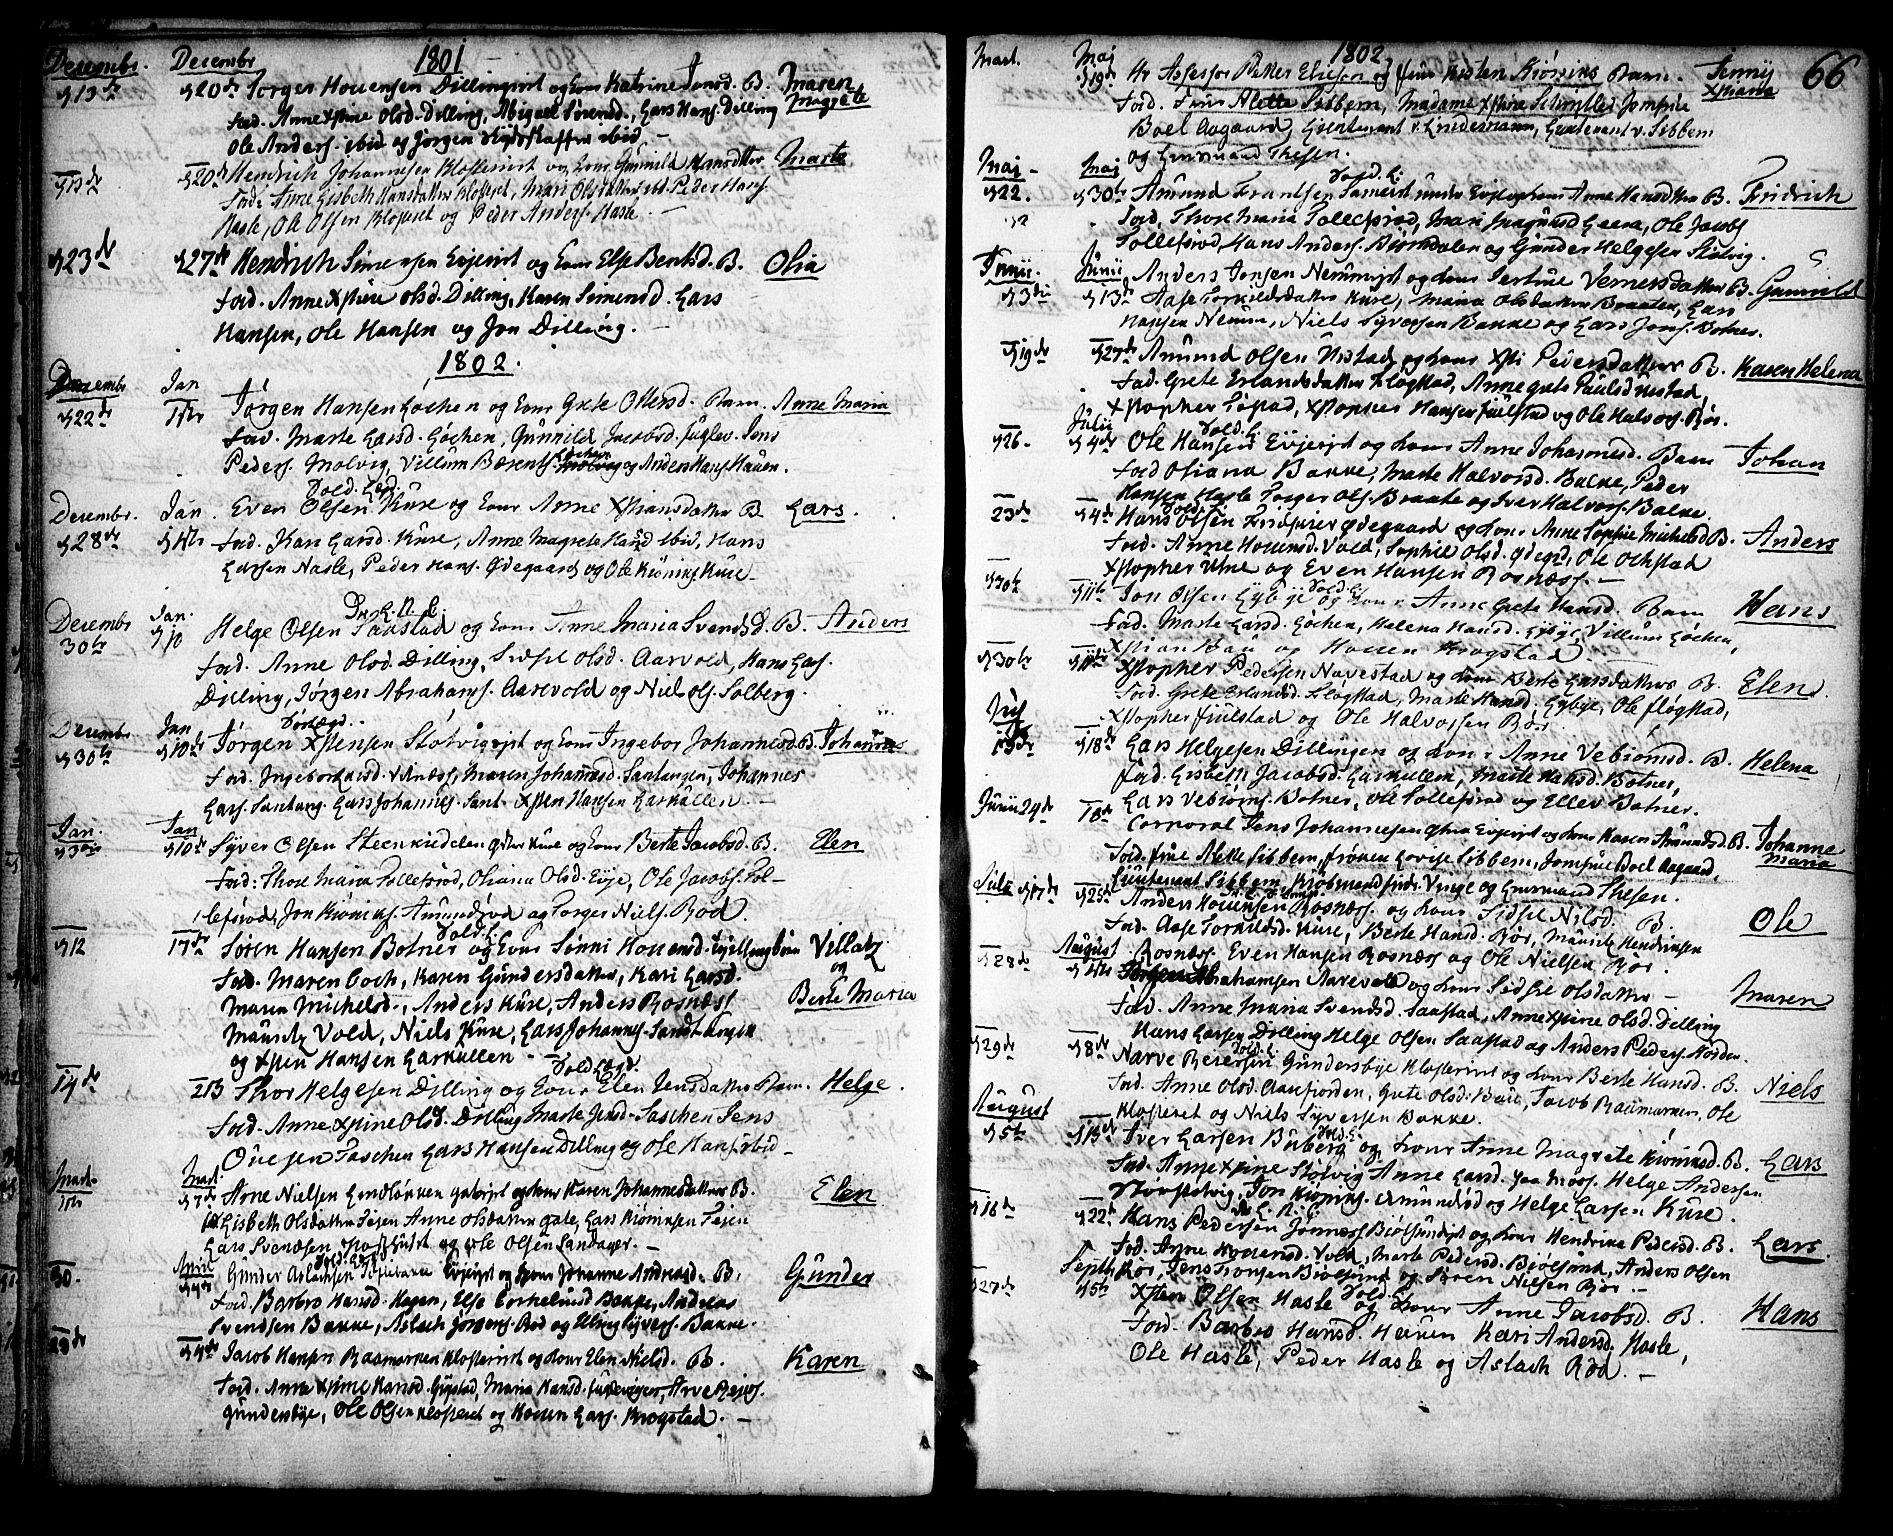 1801
Decembr. Decembr
d 13de d 20de Torger Houensen Dillingeiet og hans Katrine Jonsd. B. Maren
Fad. Anne Xstine Olsd. Dilling, Abigael Sørensd, Lars Hans. Dilling Magrete
Ole Anders. ibid og Jørgen ibid
d 13de d 20de Hendrich Johannesen Klosteret og hans Gunnild Hansdtter Marte
Fad. Anne Lisbeth Hansdatter Klosteret, Mari Olsdatter ibd. Peder Hans.
Hasle, Ole Olsen Kloseret og Peder Anders. Hasle. –
d 23de d 27de Hendrich Simensen Evjeeiet og hans Else Bentsd. B. Olia
Fad. Anne Xstine Olsd. Dilling, Karen Simensd. Lars
Hansen, Ole Hansen og Jon Dilling. –
1802.
Decembr Jan
d 22de 1ste Jørgen Hansen Lochen og hans Grete Ollersd. Barn. Anne Maria
Fad. Marte Larsd. Lochen, Gunnild Jacobsd. Fuglev. Jens
Peders. Molvig, Villum Børents. Lochen og Anders Hans. Hauen.
Decembr. Jan.
d 28de Even Olsen Kure og hans Anne Xstiansdatter B. Lars.
Fad. Kari Larsd. Kure, Anne Magrete Hansd ibid, Hans
Larsen Nasle, Peder Hans. Ødegaard og Ole Kiønigs. Kure –
Decembr Jan.
30te d 10 Helge Olsen Saastad og hans Anne Maria Svendsd. B. Anders
Fad. Anne Olsd. Dilling, Sidsel Olsd. Aarvold, Hans Lars.
Dilling, Jørgen Abrahams. Aarevold og Niel Ols. Solberg.
Decembr Jan
d 30te d 10de Jørgen Xstensen Støtvigeiet og hans Ingebor Johannesd. B. Johannes
Fad. Ingebor Maren Johannesd. Santangen, Johannes
Lars. Santang. Lars Johannes. Sant. Xsten Hansen Larkullen. –
Jan. Jan
d 3die d 10de Syver Olsen Steenkiedelen Kure og hans Berte Jacobsd. B. Elen
Fad. Thore Maria Tollefsrød, Oliana Olsd. Evje, Ole Jacobs. Tol-
lefsrød, Jon Kiønigs. Amundrød og Torger Niels. Rød.
d 12 17de Søren Hansen Botner og hans Sønni Houensd. tvillingbørn Villatz
Fad. Maren Coch, Karen Gundersdatter, Kari Larsd. og
Maren Michelsd., Anders Kure, Anders Rosnæss Berte Maria
Mauritz Vold, Niels Kure, Lars Johannes. Sandtangen
og Xsten Hansen Larkullen –
d 14de 213 Thor Helgesen Dilling og hans Elen Jensdatter Barn. Helge.
Fad. Anne Xstine Olsd. Dilling Marte Jensd. Taschen Jens
Ouesen Taschen Lars Hansen Dilling og Ole Hans. ibid –
Mart. Mart.
1ste d 7de Arne Nielsen og hans Karen Johannesdatter B. Elen
Lisbeth Olsdatter Tejen Anne Olsdatter Gate, Lars Kiønigsen Tejen
Lars Svendsen og Ole Olsen Sandager. –
April
30. Gunder Aslachsen Evjeeiet og hans Johanne Andreasd. B. Gunder
Fad. Barbro Hansd. Hagen, Else Bakke, Andreas
Svendsen Bakke, Aslach Jørgens. Rød og Syvers. Bakke.
Jacob Hansen Raamarken Klosteret og hans Elen Nielsd. B. Karen
Fad. Anne Xstine Hansd. Maria Hansd. Arve Reiers.
Gundersbye, Ole Olsen Klosteret og Houen Lars. Krogstad. –
1802. 66
Mart. Maj
d 19de Hr Assessor Petter Eliesen og Frue Kisten Kiønigs Barn. Jenny
Fad. Frue Alette Sibbern, Madame Xstine Jomfrue Xstiana
Boel Aagaard, Lieutenant v. Lindemann, Lieutenant v. Sibbern
og Thesen.
Maj Maj
d 22. d 30te Amund Frantsen og hans Anne Hansdatter B. Fridrich
Fad. Thore Maria Tollefsrød, Mari Magnusd Leera, Ole Jacobs
Tollefsrød, Hans Anders. Biørndalen og Gunder Helgesen Støtvig.
Junii. Junii
d 3die d 13de Anders Jonsen og hans Sertrue Vernersdatter B. Gunnild
Aase Torkildsdatter Kure, Maria Olsdatter Braaten, Lars
Hansen Neuum, Niels Syversen Bakke og Lars Jons. Botner.
d 19de d 27de Amund Olsen Nestad og hans Pedersdatter B. Karen Helena
Fad. Grete Erlandsdatter Flogstad, Anne Grete Paulsd Nestad,
Xstopher Xstopher Hansen Fiulstad og Ole Halvors. Rør.
Julii
d 26. d 4de Ole Hansen Evjeeiet og hans Anne Johannesd. Barn Johan
Fad Oliana Bakke, Marte Halvorsd. Bakke, Peder
Hansen Hasle Torger Ols. Braate og Iver Halvors. Bakke.
23de d 4de Hans Olsen Ødegaard og hans Anne Sophie Michelsd B. Anders
Fad. Anne Houensd. Vold, Sophie Olsd. Ødegrd, Ole Ochstad
Xstopher Une og Even Hansen Rosnæss. –
d 30te d 11te Jon Olsen Lybye og hans Anne Grete Hansd. Barn Hans
Fad. Marte Larsd. Lochen, Helena Hansd. Lybye, Villum Lochen,
Xstian Bau og Houen Krogstad. –
d 30te d 11te Xstopher Pedersen Navestad og hans Berte Larsdatter B. Elen.
Fad. Grete Erlandsd. Flogstad, Marte Hansd. Lybye, Ole Flogstad,
Xstopher Fiulstad og Ole Halvorsen Rør. –
Julj
d 18de Lars Helgesen Dillingen og hans Anne Vebiørnsd. B. Helena
Fad. Lisbeth Jacobsd. Larkullen, Marte Hansd. Botner,
Lars Vebiørns. Botner, Ole Tollefsrød og Ellev Botner.
Junii 24de 18de Corporal Jens Johannesen Evjeeiet og hans Karen Amundsd. B. Johanne
Fad. Frue Alette Sibbern, Frøken Lovise Sibbern, Jomfrue Boel Aagaard, Maria
Lieutenant Sibbern, Kiøbmand Vinge og Thesen.
Julj d 17de d 25de Anders Houensen Rosnæss. og hans Sidsel Nilsd. B. Ole
Fad. Aase Torkildsd. Kure, Berte Hansd. Rør, Mauritz Hendriksen
Rosnæss. Even Hansen Rosnæss og Ole Nielsen Rør.
August
d 28de Jørgen Abrahamsen Aarevold og hans Sidsel Olsdatter – Maren
Fad. Anne Maria Svendsd. Saastad, Anne Xstine Olsd. Dilling
Hans Larsen Dilling Helge Olsen Saastad og Anders Peders. Norden.
d 29de d 8de Narve Reiersen Gundersbye Klosteret og hans Berte Hansd. B. Niels
Fad. Anne Olsd. Aaefjorden, Grete Olsd. Jacob Raamarken, Ole
Klosteret og Niels Syversen Bakke.
August
d 5te d 15de Iver Larsen Buberg og hans Anne Magrete Kiønigsd. B. Lars
Fad. Anne Xstine Støtvig Anne Larsd. paa Moss. Helge Andersen
Nørstøtvig, Jon Kiønigs. Amundrød og Helge Larsen Kure.
d 16de d 22de Hans Pedersen Biølsundeiet og hans Hendrica Pedersd. B. Lars.
Fad. Anne Houensd. Vold, Marte Pedersd. Biølsund, Anders Olsen
Rør, Jens Tronsen Biølsund og Søren Nielsen Rør. –
Septbr
d 27de d 5te Xsten Olsen Hasle og hans Anne Jacobsd. B. Hans
Fad. Barbro Hansd. Hauen Kari Andersd. Hasle,
Ole Hasle, Peder Hasle og Aslach Rød. –